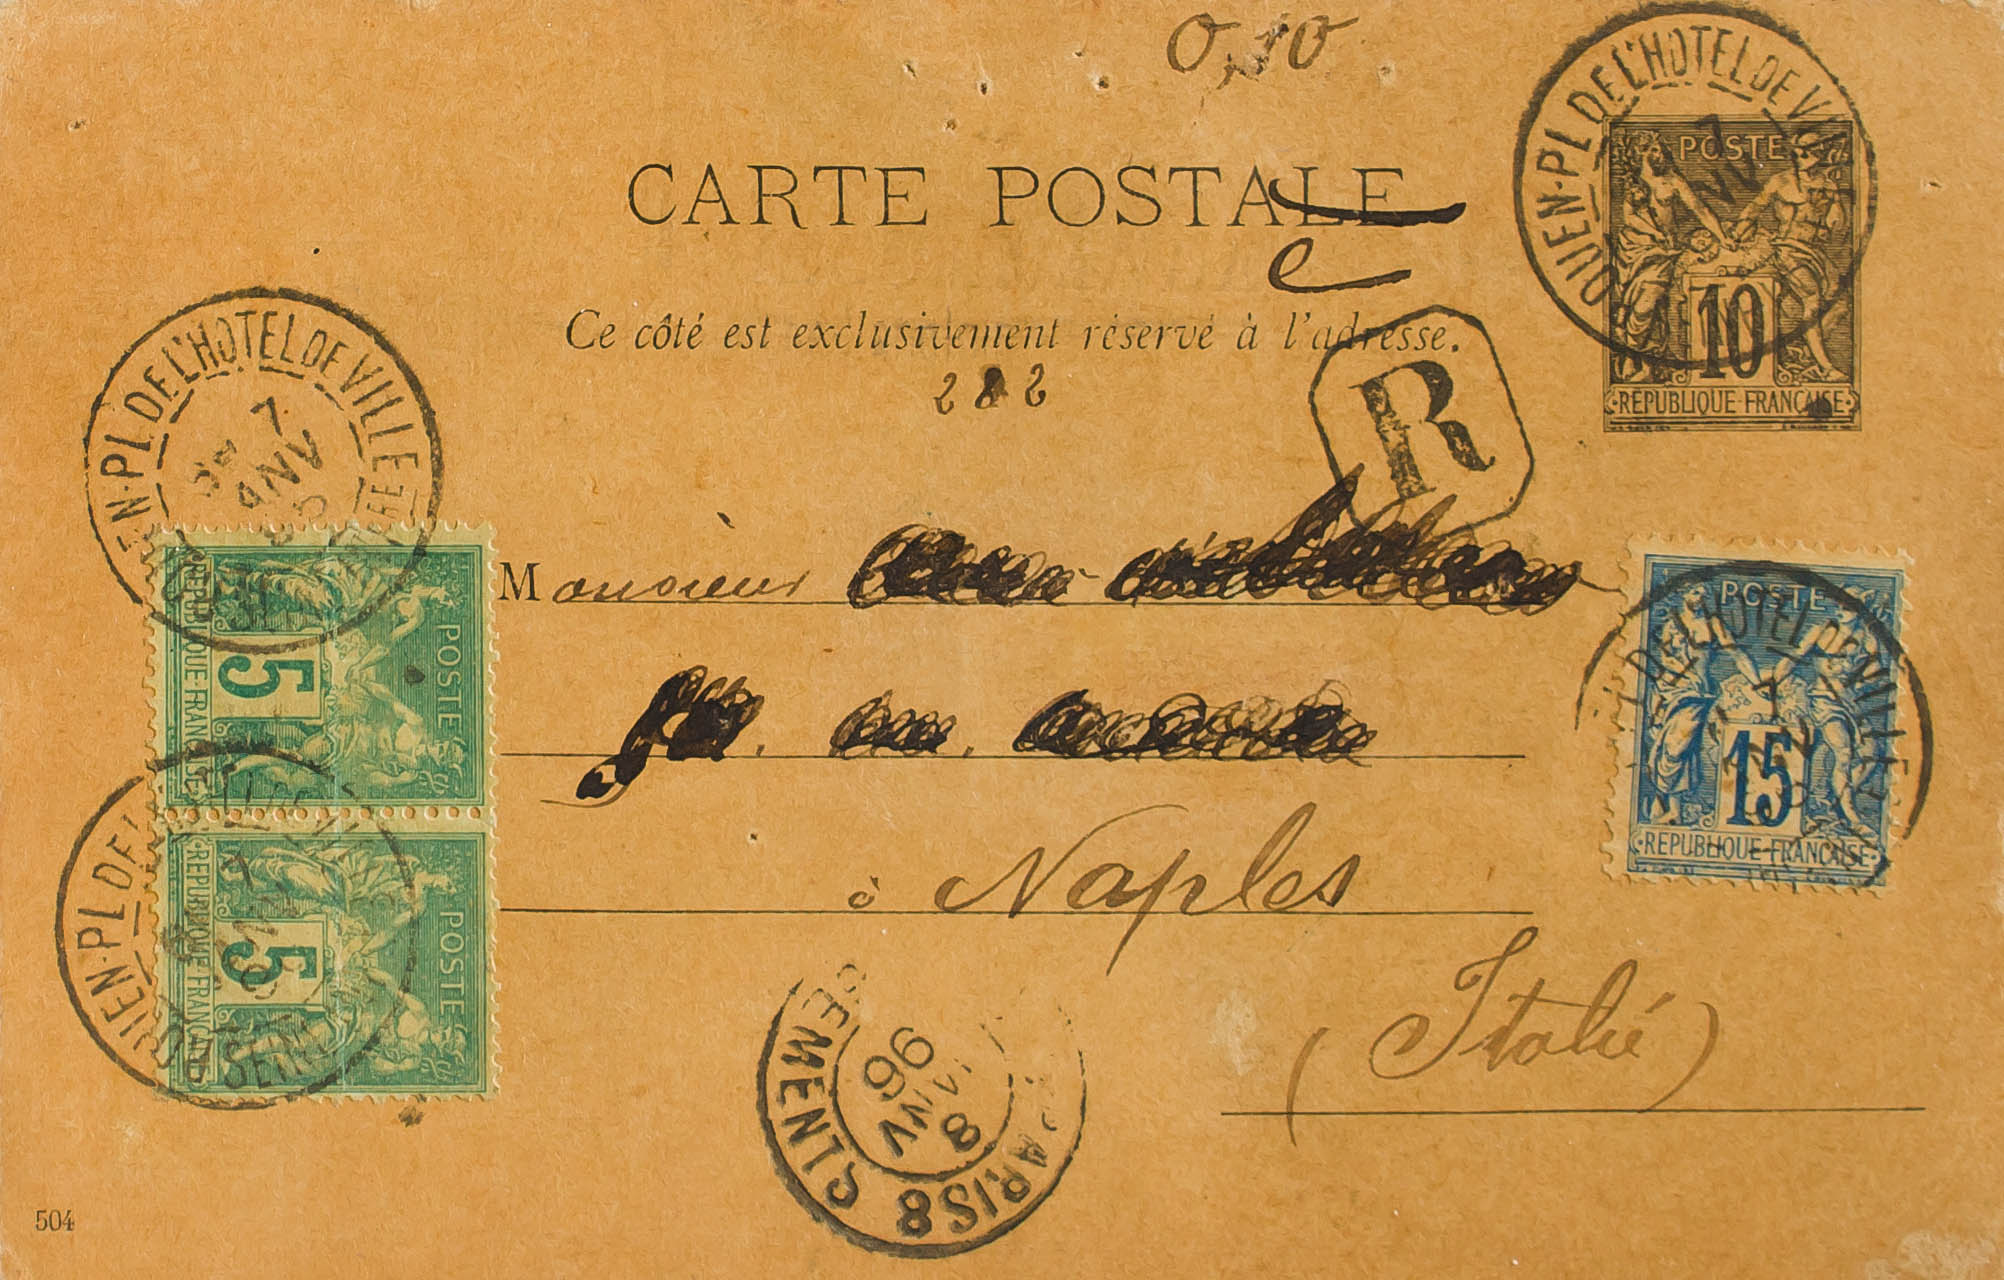 0,10
CARTE POSTALE
e
Ce côté est exclusivement réservé à l'adresse.
282
R
POSTE
10
REPUBLIQUE FRANÇAISE
OUEN-PL DE L'HOTEL DE VILLE
7
EN-PL DE L'HOTEL DE VILLE
7
JANV
POSTE
5
REPUBLIQUE FRANÇAISE
Monsieur
POSTE
15
REPUBLIQUE FRANÇAISE
DE L'HOTEL DE VILLE
7
POSTE
5
REPUBLIQUE FRANÇAISE
OUEN-PL DE L
7
SEINE
à Naples
(Italie)
PARIS 8
8
JANV
96
504